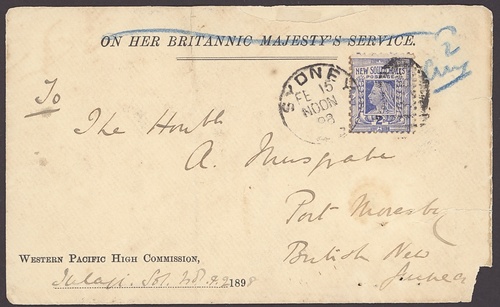 ON HER BRITANNIC MAJESTY'S SERVICE.
2
SYDNEY
FE 15
NOON
98
NEW SOUTH WALES
POSTAGE
To
The Honble
A. Musgrave
Port Moresby
British New
Guinea
WESTERN PACIFIC HIGH COMMISSION,
Tulagi. Sol. 1898